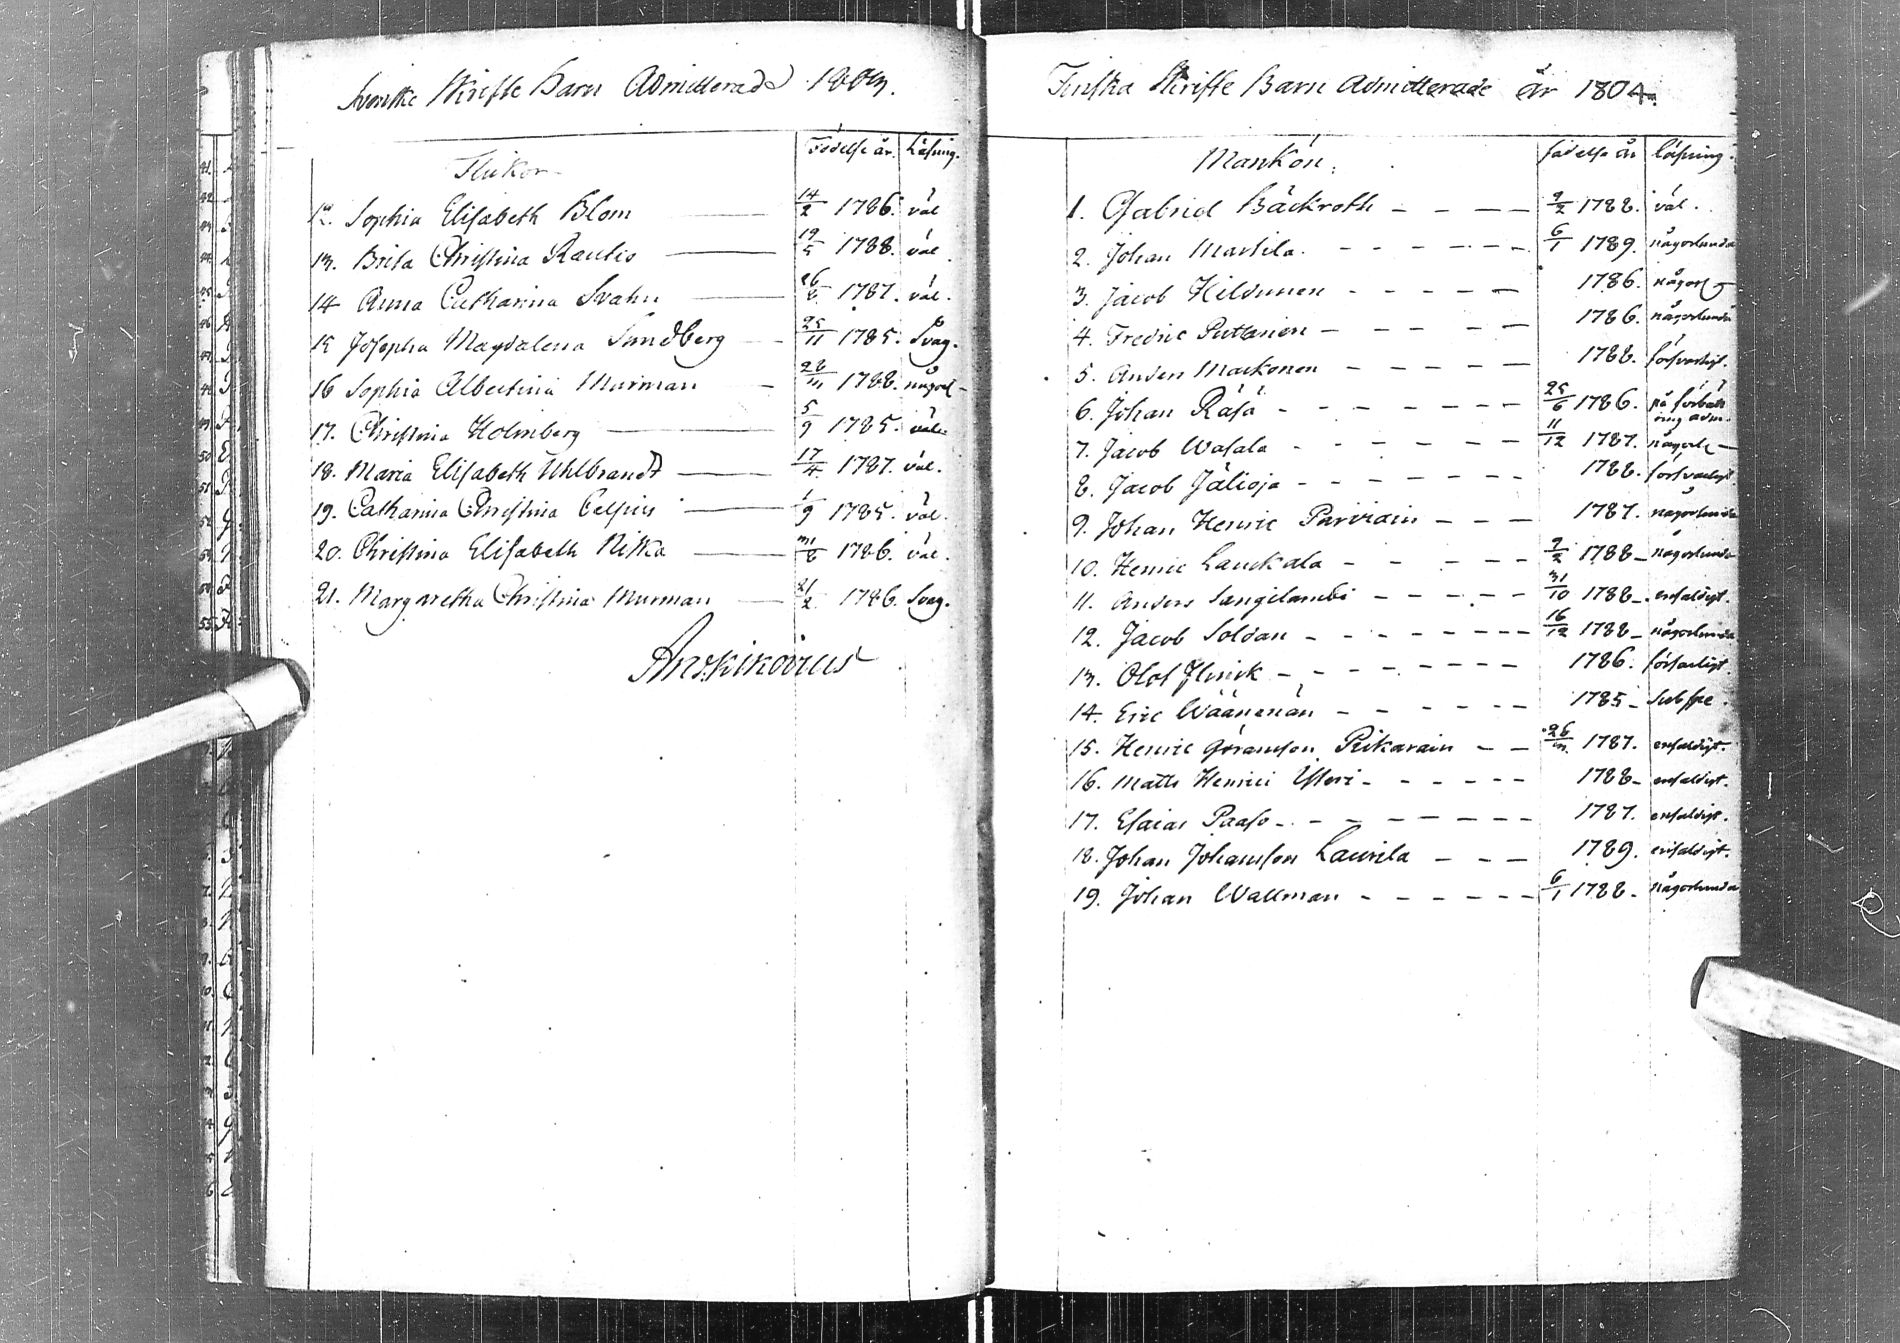 Svenska Skrifte Barn Admitterade 1803.
Flickor Födelse år. Läsning.
12. Sophia Elisabeth Blom 14/2 1786. väl
13. Brita Christina Rautio 19/5 1788. väl.
14 Anna Catharina Svahn 26/8 1787. väl.
15 Josepha Magdalena Sundberg 25/11 1785. Svag.
16 Sophia Albertina Murman 28/3 1788. någorl
17. Christina Holmberg 5/9 1785. väl.
18. Maria Elisabeth Uhlbrandt 17/4 1787. väl.
19. Catharina Christina 1/9 1785. väl.
20. Christina Elisabeth Niska 31/8 1786. väl.
21. Margaretha Christina Murman 21/2 1786. Svag.
Finska Skrifte Barn Admitterade år 1804.
Mankön. födelse år läsning.
1. Gabriel Bäckroth 2/2 1788. väl.
2. Johan Martila. 6/1 1789. någorlunda
3. Jacob Hildunen 1786. någorl
4. Fredric Puttonen 1786. någorlunda
5. Anders Markonen 1788. försvarligt.
6. Johan Räsä 25/6 1786. på förbätt
ring adm.
7. Jacob Wasala 11/12 1787. någorl
8. Jacob Jälioja 1788. försvarligt
9. Johan Henric Parviain 1787. någorlunda
10. Henric Lauckala 2/2 1788 någorlunda
11. Anders Sangilambi 31/10 1788. enfaldigt.
12. Jacob Soldan 16/12 1788 någorlunda
13. Olof 1786. försvarligt.
14. Eric Wäänenän 1785 Sub spe.
15. Henric Göransson Pikarain 26/3 1787. enfaldigt.
16. Matts Henrici 1788 enfaldigt.
17. Esaias Paaso 1787. enfaldigt.
18. Johan Johansson Laurila 1789. enfaldigt.
19. Johan Wallman 6/1 1788 någorlunda